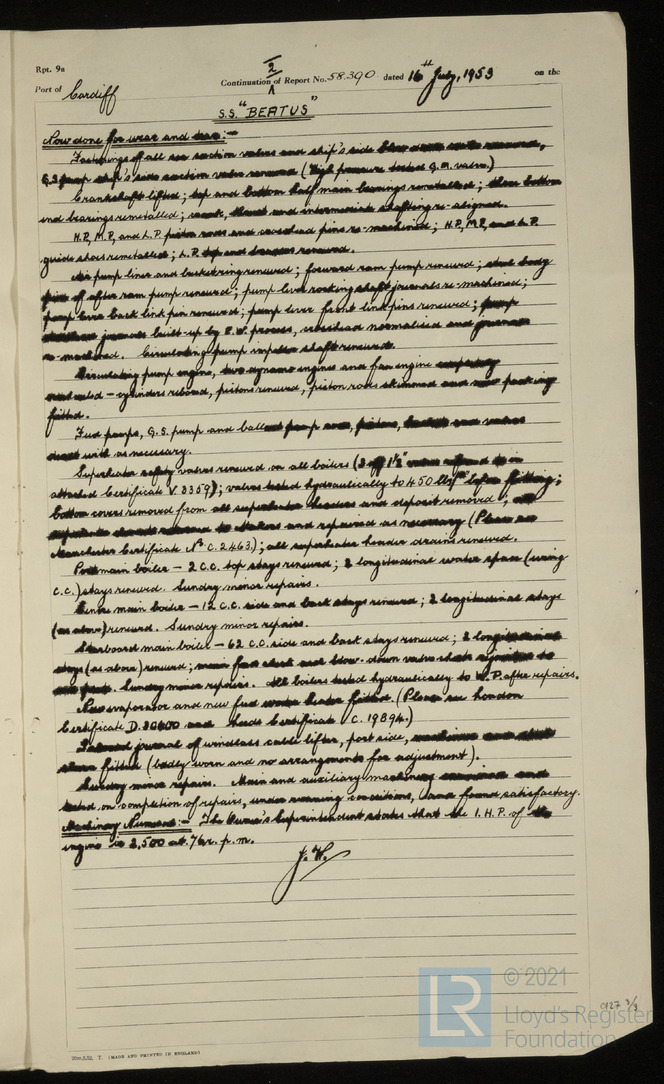 Rpt. 9a
2
Port of Cardiff Continuation of Report No. 58.390 dated 16th July, 1953 on the
S.S. "BERTUS"
Now done for wear and tear:-
Fastenings of all sea suction valves and ship's side
ship's side suction valve renewed (High pressure tested G.M. valve.)
Crankshaft lifted; top and bottom half main bearings remetalled; bottom
end bearings remetalled; thrust and intermediate shafting re-aligned.
H.P., M.P., and L.P. piston rods and crosshead pins re-machined; H.P., M.P., and L.P.
guide shoes remetalled; L.P. top and renewed.
Air pump liner and bucket ring renewed; forward ram pump renewed; body
of after ram pump renewed; pump lever rocking shaft journals re-machined;
pump lever back link pin renewed; pump lever front link pins renewed; pump
journals built-up by E.W. process, crosshead normalised and journals
re-machined. Circulating pump impeller shaft renewed.
Circulating pump engine, two dynamo engines and fan engine completely
overhauled - cylinders rebored, pistons renewed, piston rods skimmed and new packing
fitted.
Feed pumps, G.S. pump and ballast pump and valves
dealt with as necessary.
Superheater safety valves renewed on all boilers (3 off 1½" valves referred to in
attached Certificate V.3359); valves tested hydraulically to 450 lbs/" before fitting;
bottom covers removed from all superheater headers and deposit removed;
to makers and repaired as necessary (Please see
Manchester Certificate No C.2463.); all superheater header drains renewed.
Port main boiler - 2 C.C. top stays renewed; 2 longitudinal water space (wing
C.C.) stays renewed. Sundry minor repairs.
Centre main boiler - 12 C.C. side and back stays renewed; 2 longitudinal stays
(as above) renewed. Sundry minor repairs.
Starboard main boiler - 62 C.C. side and back stays renewed; 2 longitudinal
stays (as above) renewed; main feed check and blow-down valve to
Sundry minor repairs. All boilers tested hydraulically to W.P. after repairs.
New evaporator and new feed water heater fitted. (Please see London
Certificate D.20400 and Leeds Certificate C.19894.)
journal of windlass cable lifter, port side,
fitted (badly worn and no arrangements for adjustment).
Sundry minor repairs. Main and auxiliary machinery examined and
tested on completion of repairs, under running conditions, and found satisfactory.
Machinery Numeral:- The Owner's Superintendent states that the I.H.P. of the
engine is 2,500 at 76 r.p.m.
J.H.
© 2021
LR
Lloyd's Register
Foundation
0127 3/3
20m,3,52. T. (MADE AND PRINTED IN ENGLAND)